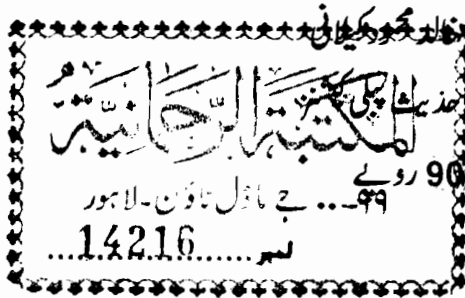 خالد محمود کیلانی
حدیث پبلی کیشنز
المكتبة الرحمانية
90 روپے
۹۹... جے ماڈل ٹاؤن۔ لاہور
نمبر ....14216....